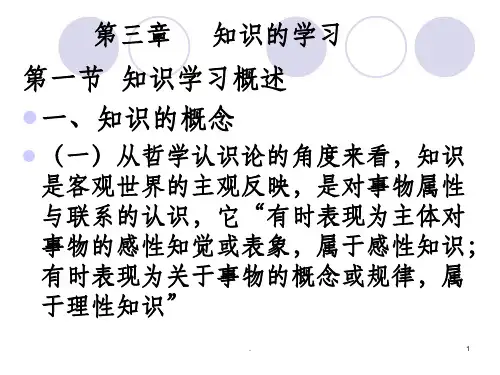 第三章 知识的学习
第一节 知识学习概述
一、知识的概念
（一）从哲学认识论的角度来看，知识
是客观世界的主观反映，是对事物属性
与联系的认识，它“有时表现为主体对
事物的感性知觉或表象，属于感性知识；
有时表现为关于事物的概念或规律，属
于理性知识”
.
1